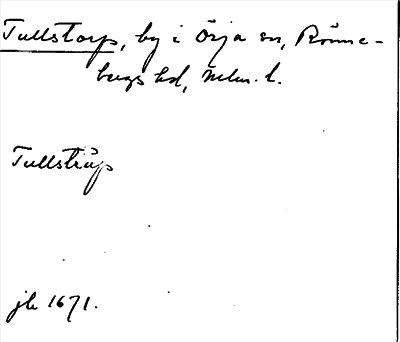 Tullstorp, by i Örja sn, Rönne-
bergs hd, Mlm. l.
Tullstrup
jb 1671.